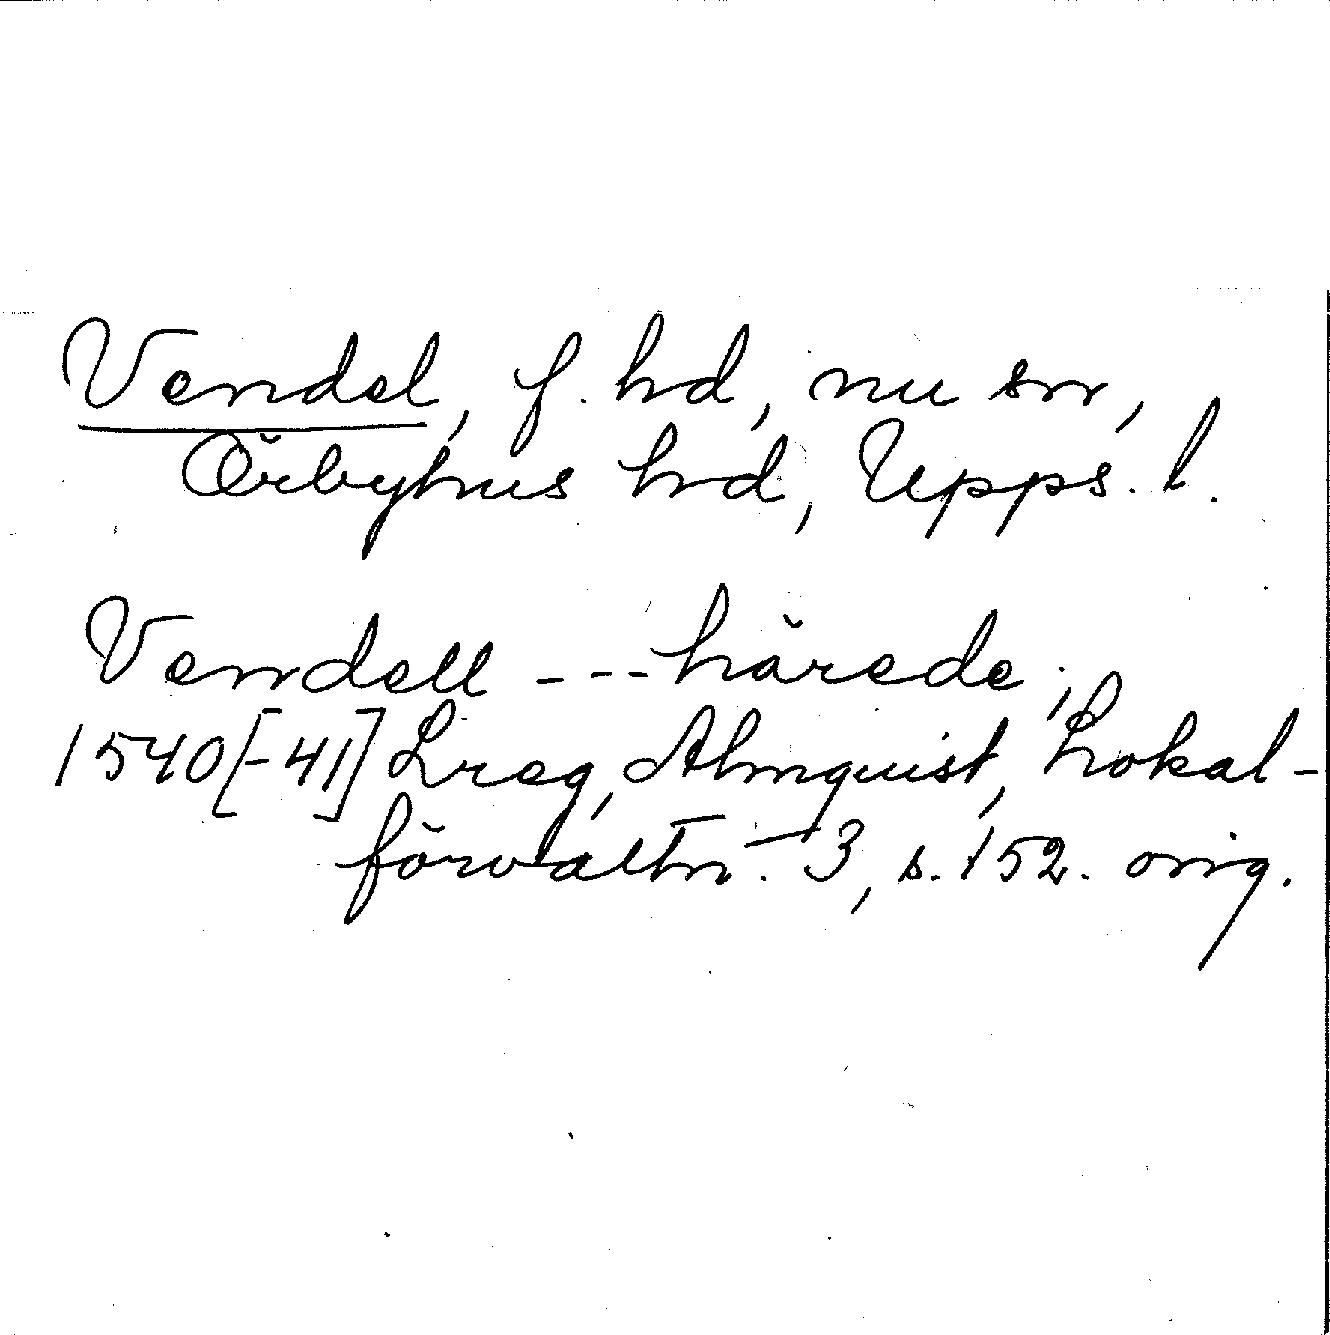 Vendel, f. hd, nu sn,
Örbyhus hd, Upps. l.
Vendell --- härede,
1540[-41] Lreg, Almquist, Lokal-
förvaltn. 3, s. 152. orig.